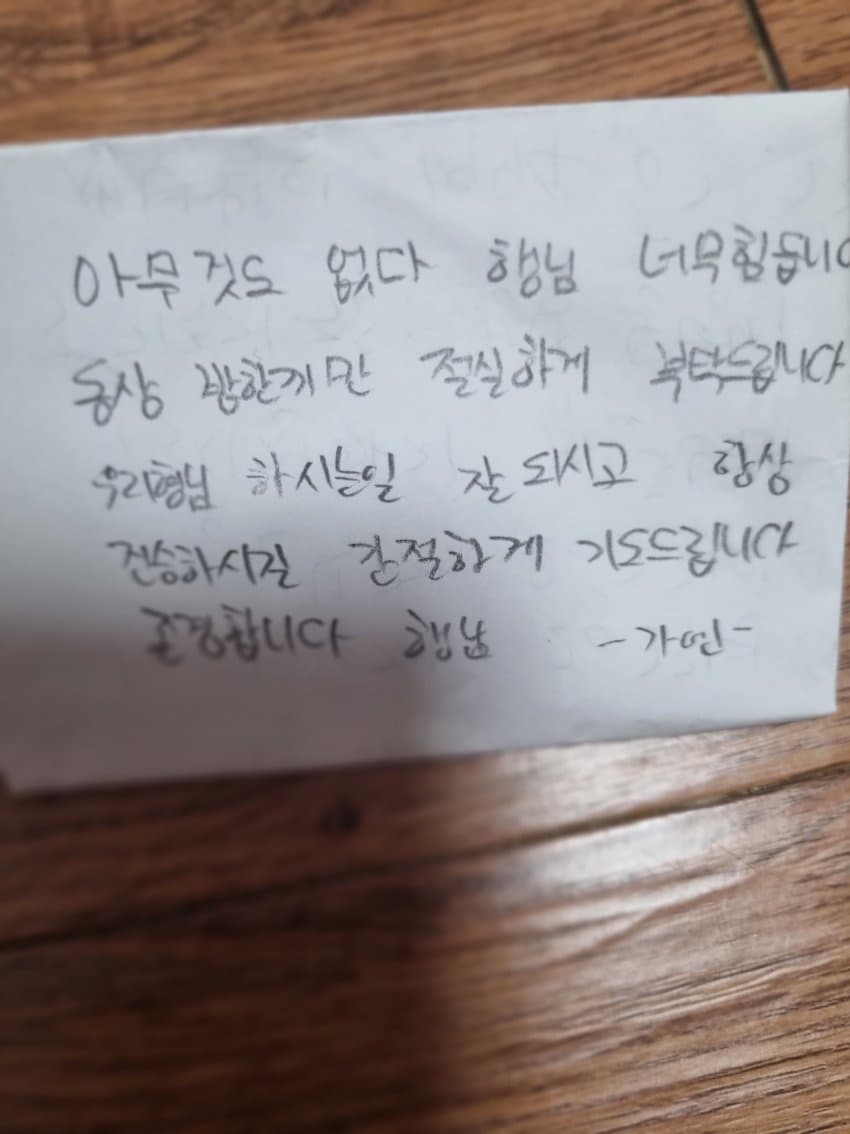 아무것도 없다 행님 너무힘듭니다
동상 밥한끼만 절실하게 부탁드립니다
우리형님 하시는일 잘되시고 항상
전승하시길 간절하게 기도드립니다
존경합니다 행님 -가연-